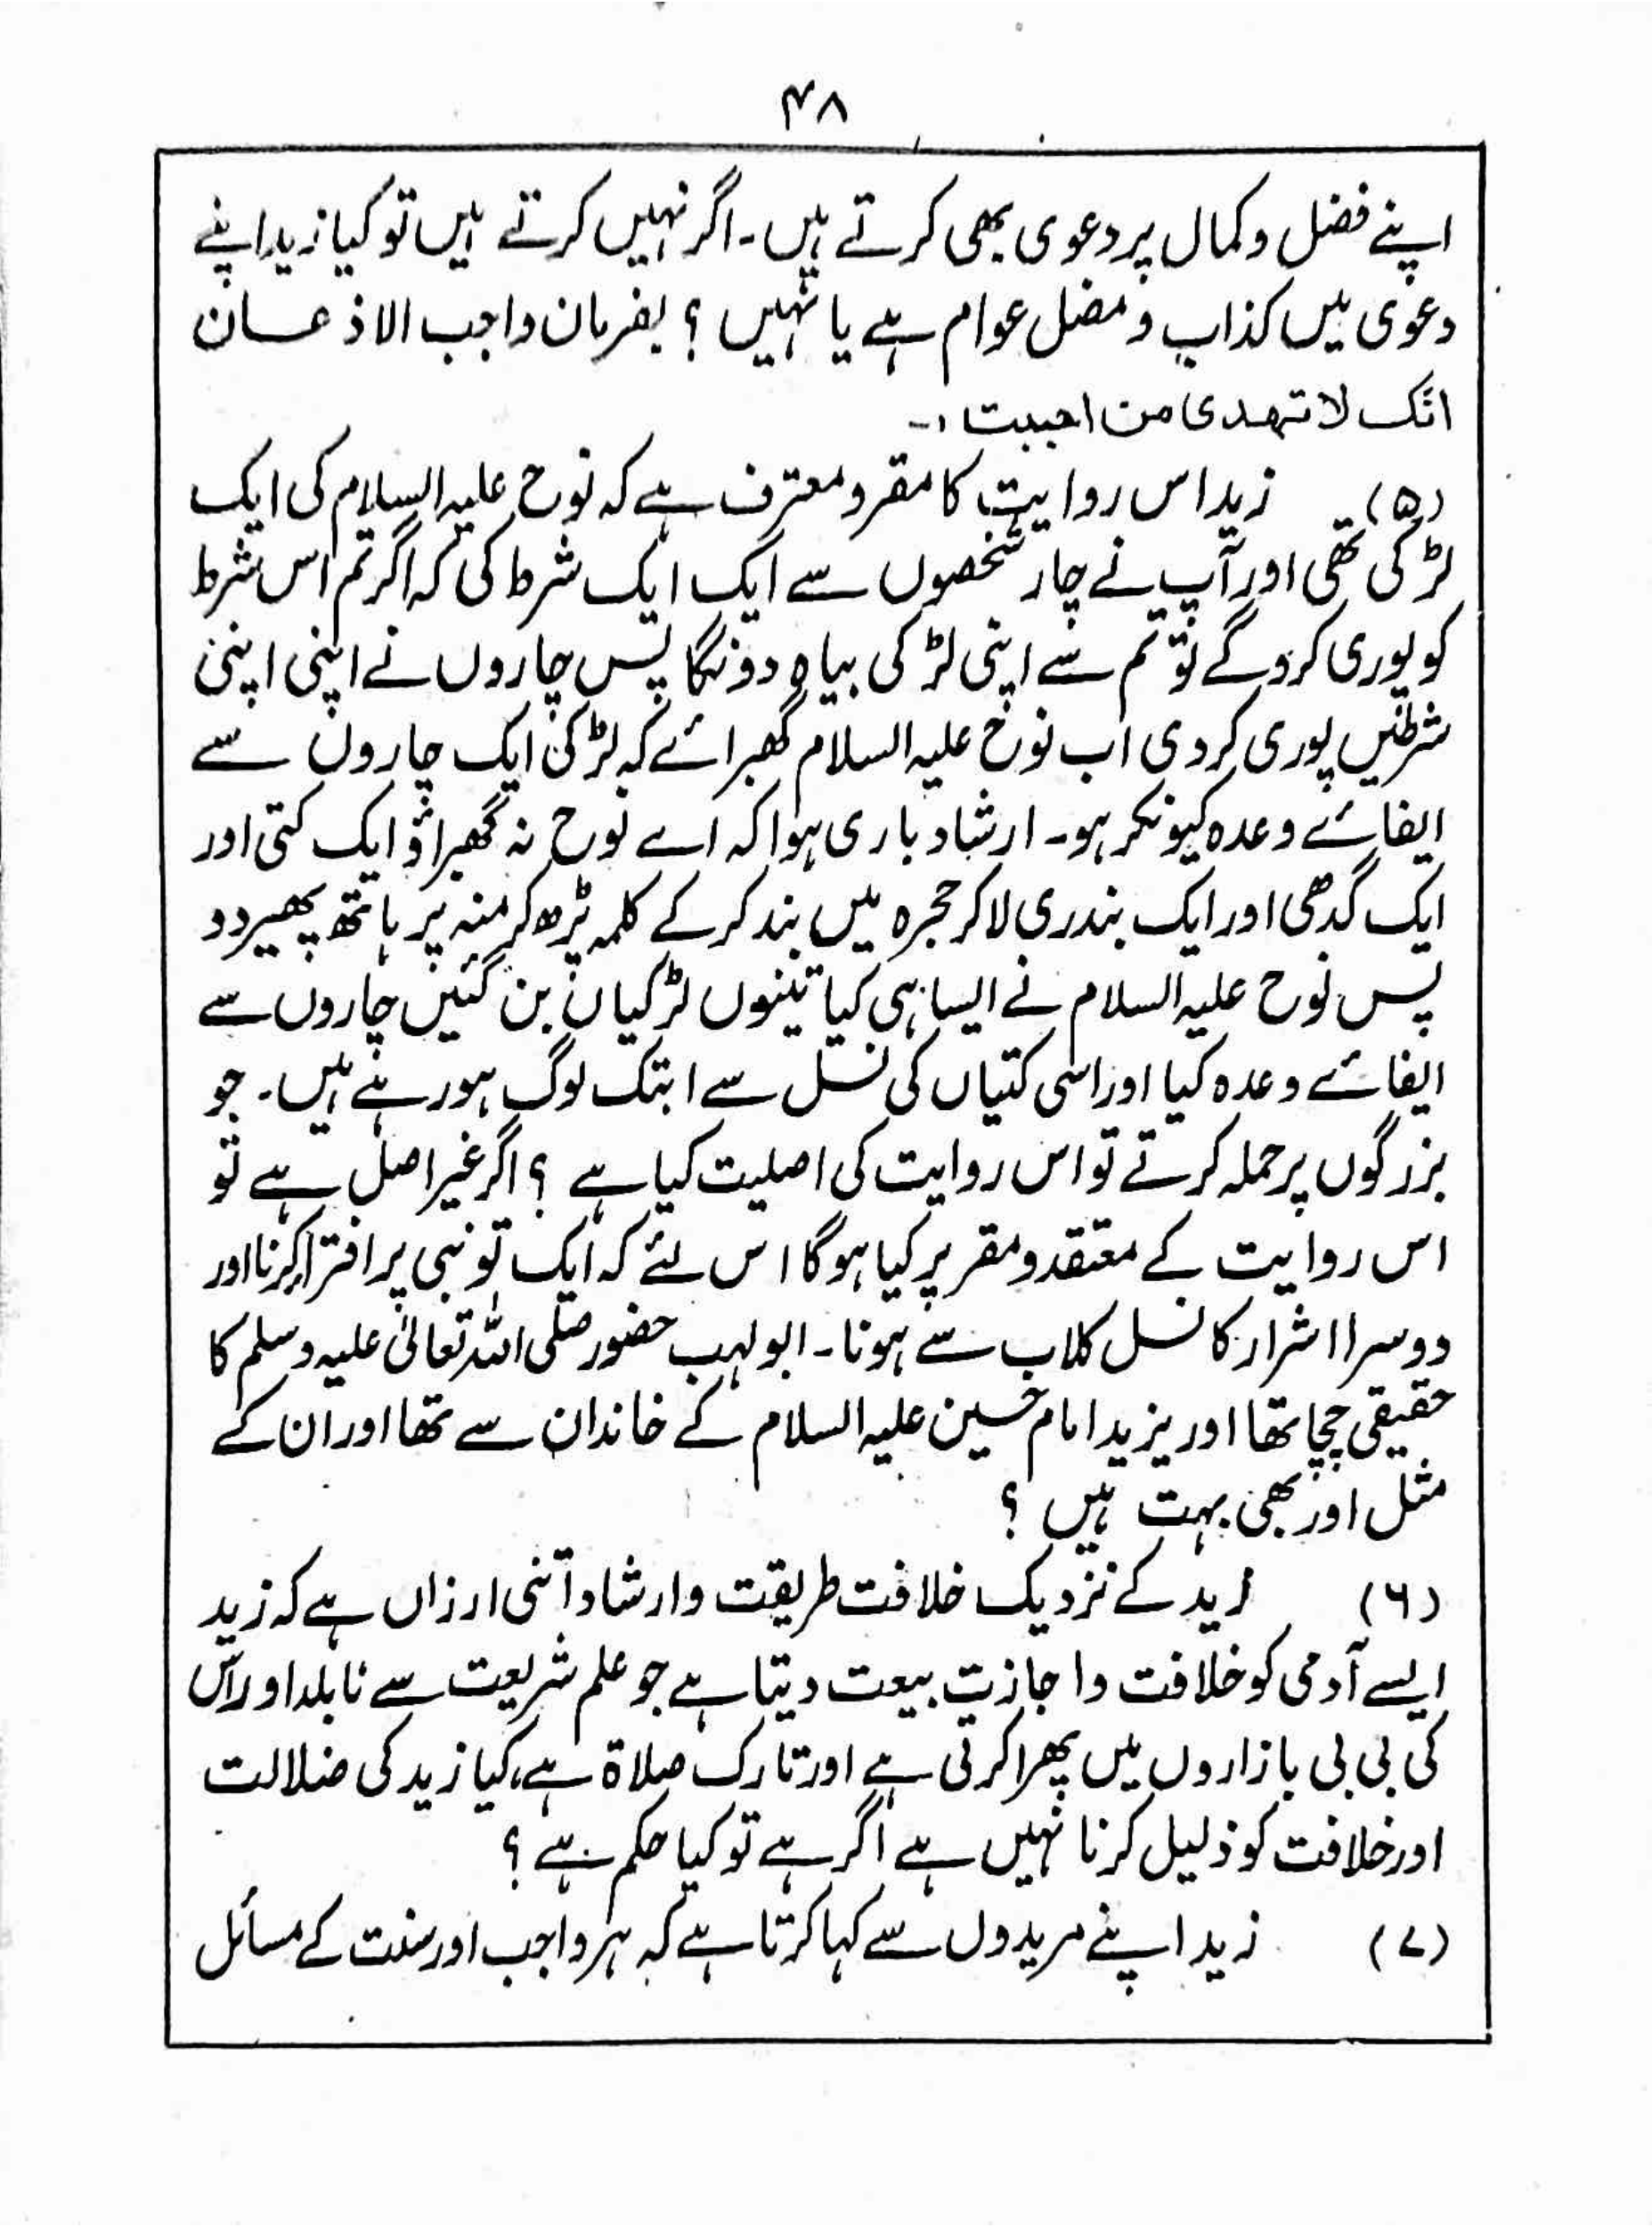 ۴۸
اپنے فضل وکمال پر دعوی بھی کرتے ہیں۔ اگر نہیں کرتے ہیں تو کیا زید اپنے
دعوی میں کذاب و مضل عوام ہے یا نہیں ؟ بفرمان واجب الاذعان
انّک لا تھدی من احببت ۔
(۵) زید اس روایت کا مقر و معترف ہے کہ نوح علیہ السلام کی ایک
لڑکی تھی اور آپ نے چار شخصوں سے ایک ایک شرط کی کہ اگر تم اس شرط
کو پوری کروگے تو تم سے اپنی لڑکی بیاہ دونگا پس چاروں نے اپنی اپنی
شرطیں پوری کردی اب نوح علیہ السلام گھبرائے کہ لڑکی ایک چاروں سے
ایفائے وعدہ کیونکر ہو۔ ارشاد باری ہوا کہ اے نوح نہ گھبراؤ ایک کتی اور
ایک گدھی اور ایک بندری لاکر حجرہ میں بند کرکے کلمہ پڑھ کر منہ پر ہاتھ پھیر دو
پس نوح علیہ السلام نے ایسا ہی کیا تینوں لڑکیاں بن گئیں چاروں سے
ایفائے وعدہ کیا اور اسی کتیاں کی نسل سے ابتک لوگ ہو رہے ہیں۔ جو
بزرگوں پر حملہ کرتے تو اس روایت کی اصلیت کیا ہے ؟ اگر غیر اصل ہے تو
اس روایت کے معتقد و مقر پر کیا ہوگا اس لئے کہ ایک تو نبی پر افترا کرنا اور
دوسرا اشرار کا نسل کلاب سے ہونا۔ ابولہب حضور صلی اللہ تعالیٰ علیہ وسلم کا
حقیقی چچا تھا اور یزید امام حسین علیہ السلام کے خاندان سے تھا اور ان کے
مثل اور بھی بہت ہیں ؟
(۶) زید کے نزدیک خلافت طریقت وارشاد اتنی ارزاں ہے کہ زید
ایسے آدمی کو خلافت و اجازت بیعت دیتا ہے جو علم شریعت سے نابلد اور اس
کی بی بی بازاروں میں پھرا کرتی ہے اور تارک صلاۃ ہے، کیا زید کی ضلالت
اور خلافت کو ذلیل کرنا نہیں ہے اگر ہے تو کیا حکم ہے ؟
(۷) زید اپنے مریدوں سے کہا کرتا ہے کہ ہر واجب اور سنت کے مسائل